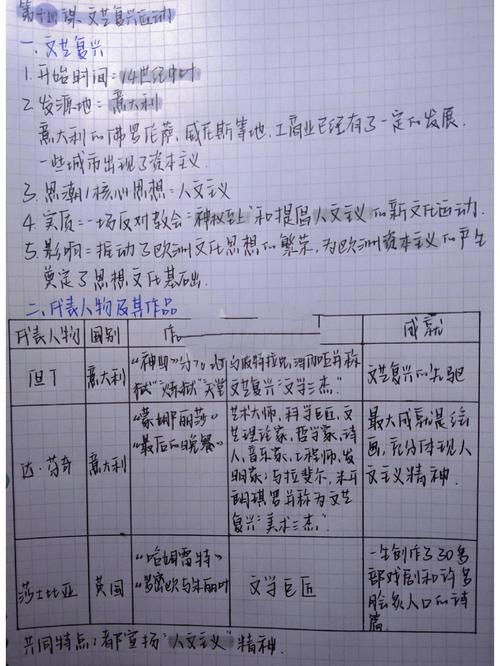 第十四课、文艺复兴运动
一、文艺复兴
1. 开始时间：14世纪中叶
2. 发源地：意大利
意大利的佛罗伦萨，威尼斯等地，工商业已经有了一定的发展.
一些城市出现了资本主义.
3. 思潮/核心思想：人文主义
4. 实质：一场反对教会"神权至上"和提倡人文主义的新文化运动.
5. 影响：推动了欧洲文化思想的繁荣，为欧洲资本主义的产生
奠定了思想文化基础.
二、代表人物及其作品
代表人物 国别 作 成就
但丁 意大利
"神曲"分为地
狱"炼狱"天堂
与彼特拉克，薄伽丘并称
文艺复兴"文学三杰."
文艺复兴的先驱
达·芬奇 意大利
"蒙娜丽莎"
"最后的晚餐"
艺术大师，科学巨匠，文
艺理论家，哲学家，诗
人，音乐家，工程师，发
明家；与拉斐尔，米开
朗琪罗并称为文艺
复兴"美术三杰."
最大成就是绘
画，充分体现人
文主义精神.
莎士比亚 英国
"哈姆雷特"
"罗密欧与朱丽叶
文学巨匠
一生创作了30多
部戏剧和许多
脍炙人口的诗
篇
共同特点：都宣扬"人文主义"精神.